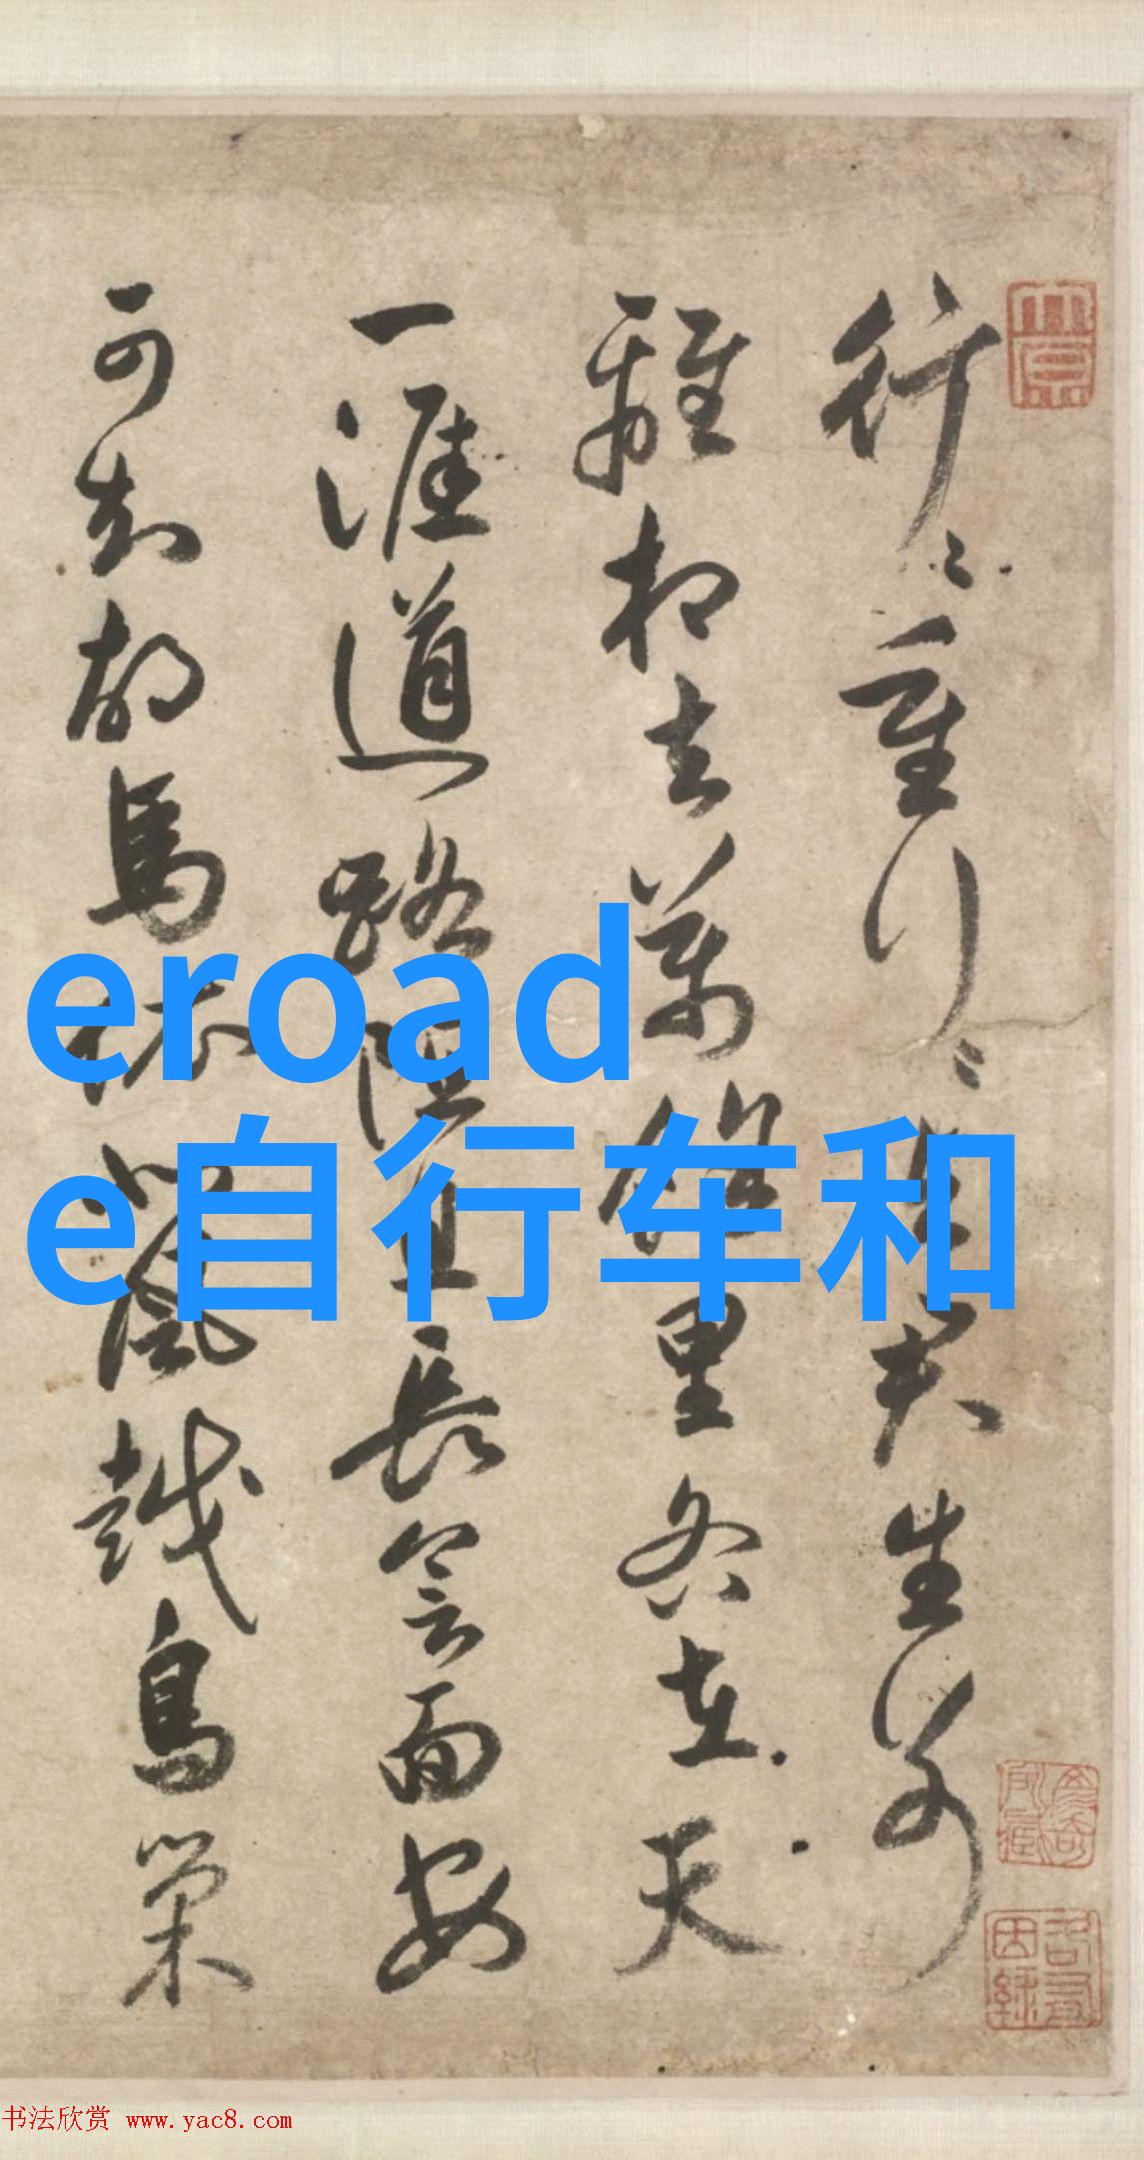 行〻重行〻與君生別
離相去萬餘里各在天
一涯道路阻且長會面安
可知胡馬依北風越鳥巢
eroad
e自行车和
书法欣赏 www.yac8.com